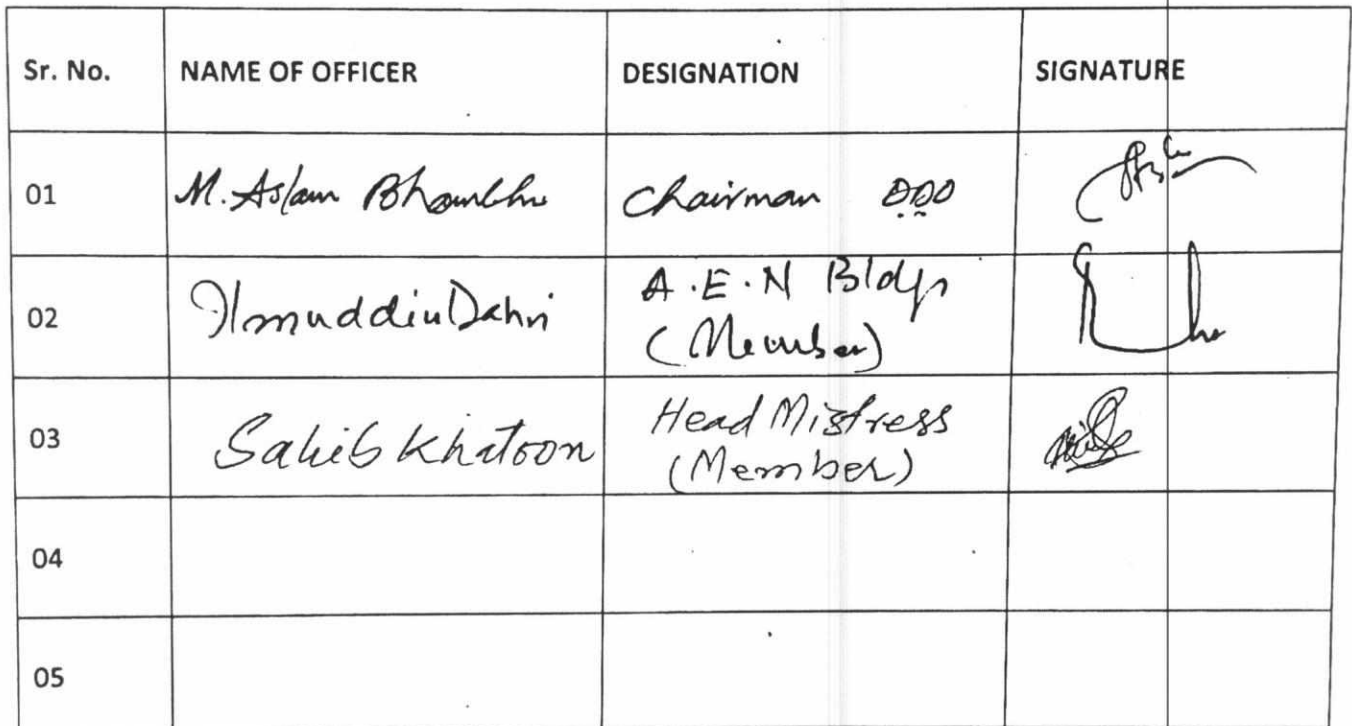 Sr. No. NAME OF OFFICER DESIGNATION SIGNATURE
01 M. Aslam Bhambhro Chairman DDO
02 Ilmuddin Dahri A.E.N Bldgs
(Member)
03 Sahib Khatoon Head Mistress
(Member)
04
05